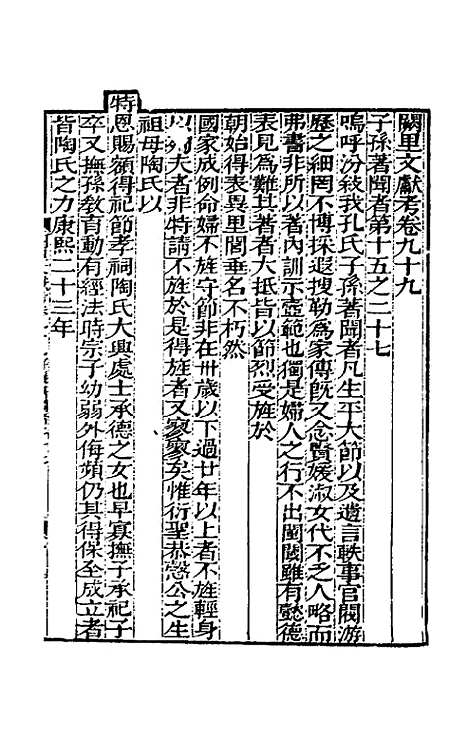 闕里文獻考卷九十九
子孫著聞者第十五之二十七
嗚呼汾紱我孔氏子孫著聞者凡生平大節以及遺言軼事官閥游
歷之細罔不博採遐搜勒為家傳旣又念賢媛淑女代不乏人略而
弗書非所以著內訓示壼範也獨是婦人之行不出閨閫雖有懿德
表見為難其著者大抵皆以節烈受旌於
朝始得表異里閭垂名不朽然
國家成例命婦不旌守節非在卅歲以下過廿年以上者不旌輕身
以殉夫者非特請不旌於是得旌者又寥寥矣惟衍聖恭愨公之生
祖母陶氏以
特恩賜額得祀節孝祠陶氏大興處士承德之女也早寡撫子承祀子
卒又撫孫敎育動有經法時宗子幼弱外侮頻仍其得保全成立者
皆陶氏之力康熙二十三年